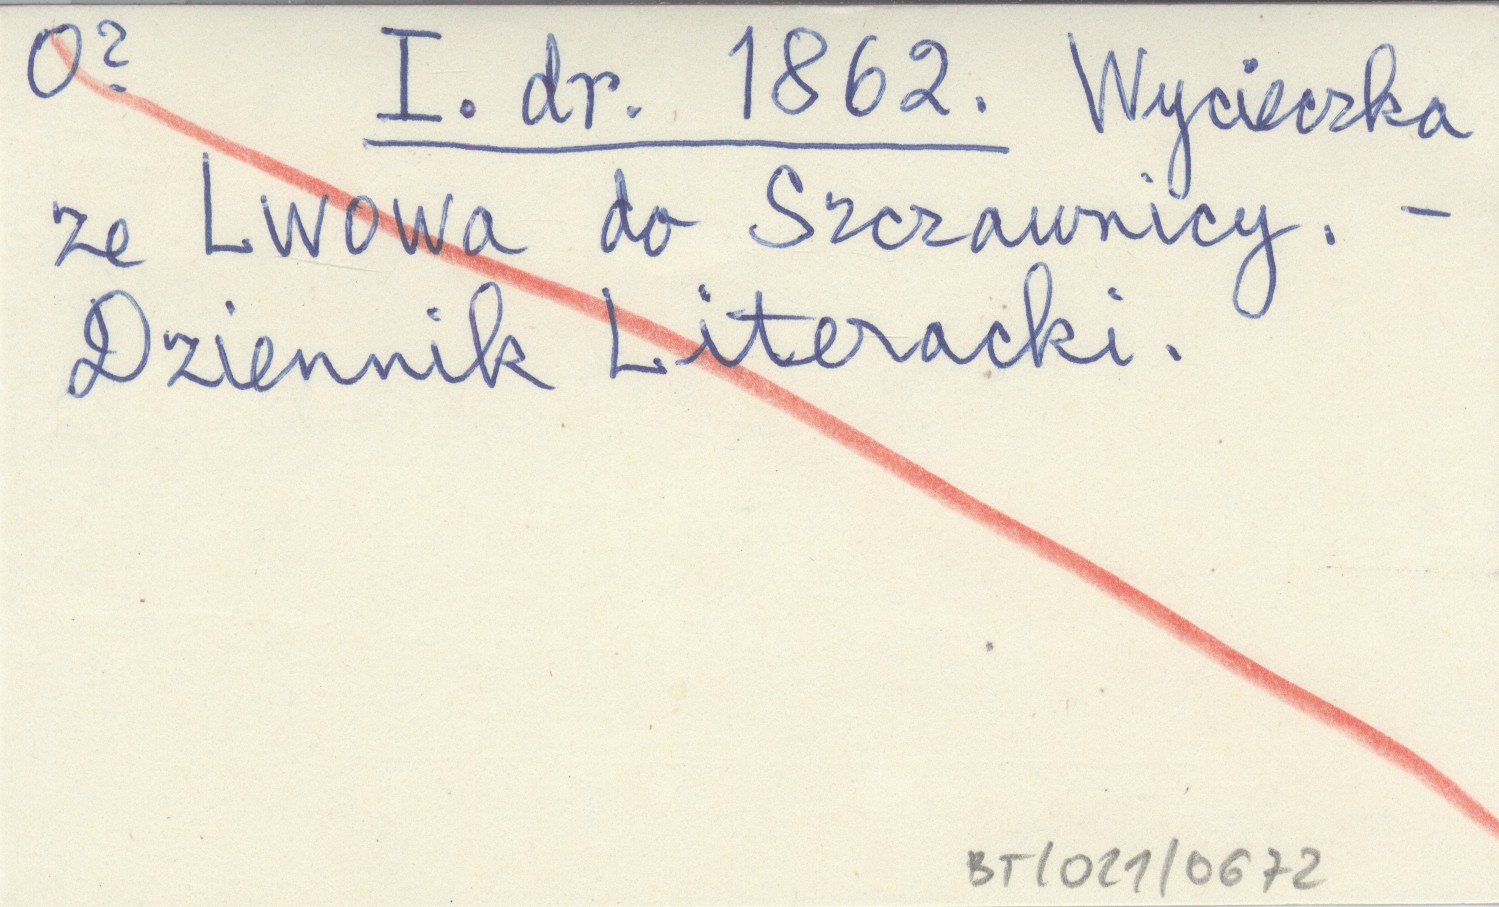 O? I. dr. 1862. Wycieczka
ze Lwowa do Szczawnicy. -
Dziennik Literacki.
BT/021/0672